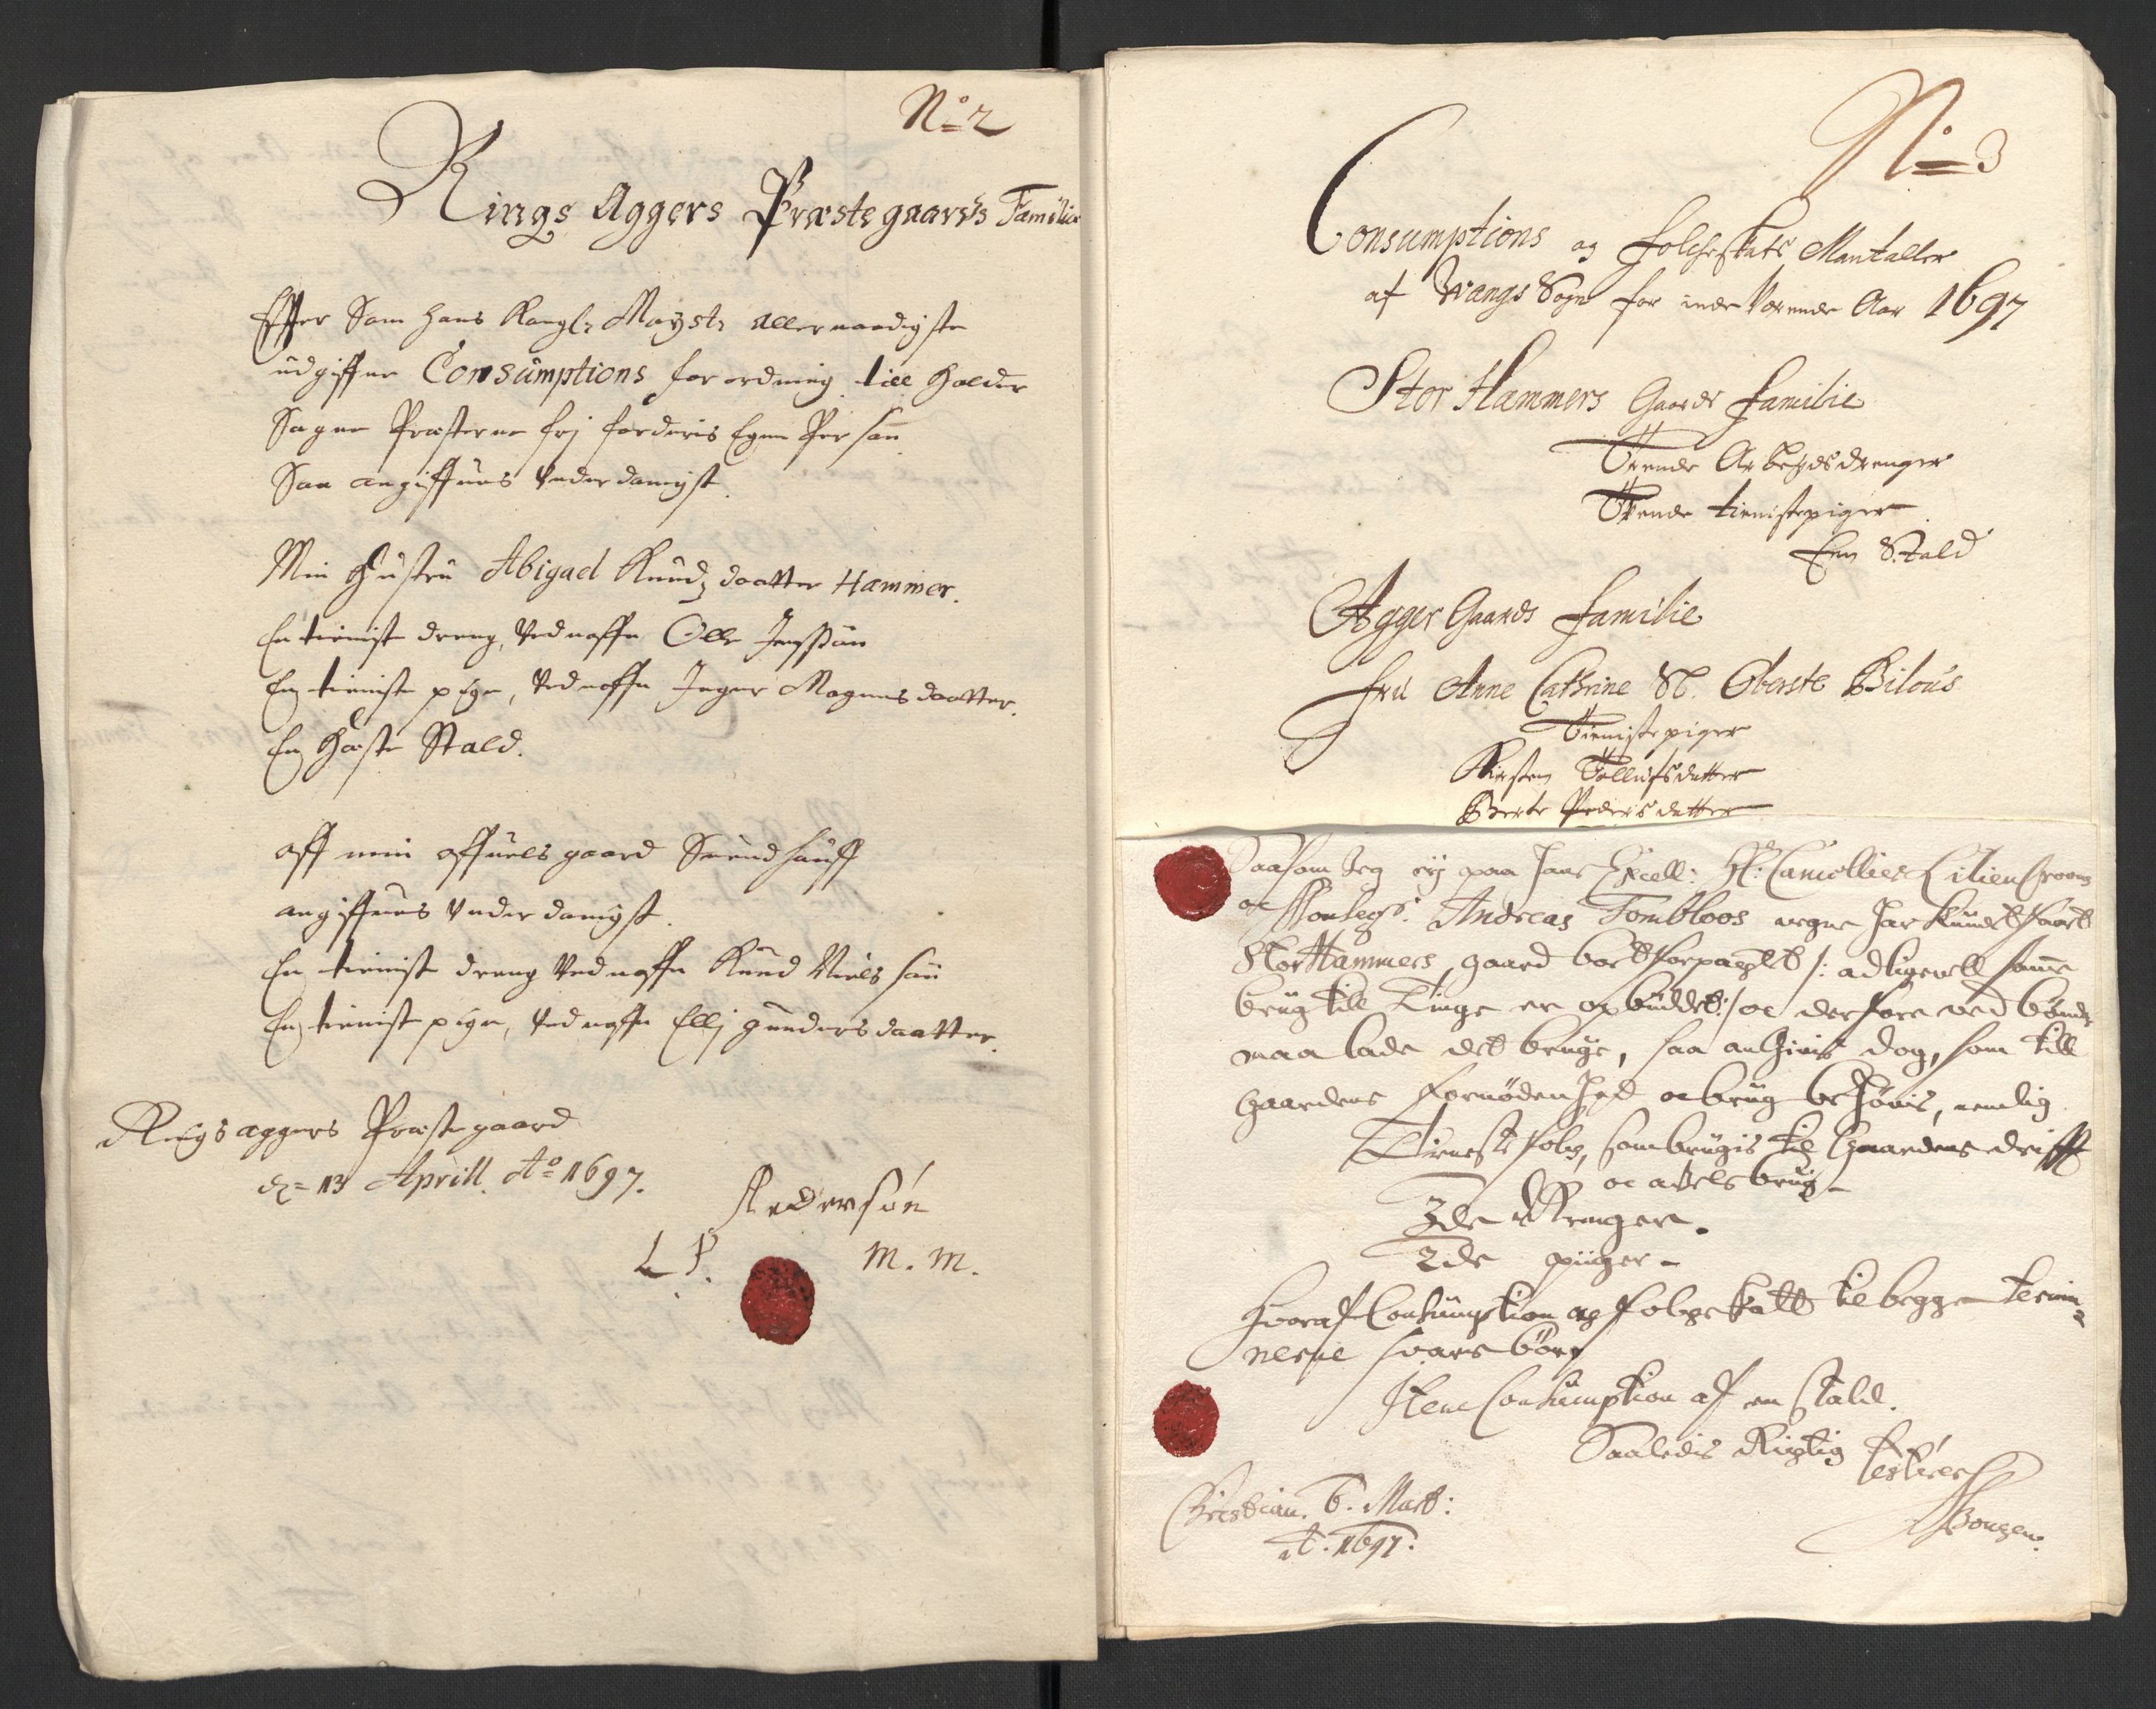 No 2
Rings Aggers Præstegaards Familie
Effter Som hans Kongl: Mayst: Allernaadigste
udgiffne Consumptions forordning till holder
Sogne Præsterne frj for deris Egne Person
Saa angiffues Underdanigst.
Min Hustru Abigael Knudz daatter Hammer.
En tienist dreng, Ved naffn Olle Jenssøn
En tieniste pige, Ved naffn Inger Mogensdaatter.
En Heste Stald.
Aff min affuels gaard
angiffues Underdanigst.
En tienist dreng Ved naffn Knud Nielssøn
En tienist pige, Ved naffn Ellj gundersdaatter.
Ringsaggers Præstegaard
d: 13 Aprill Ao 1697.
Pedersøn
L P. M. M.
No 3
Consumptions og folcheskats Mantaller
af Wangs Sogn for inde Værende Aar 1697
Stor Hammers Gaards familie
Trende Arbeydsdrenger
Tvende tienistepiger
Een Stald
Agger Gaards familie
fru Anne Cathrine Sl. Oberste Bilous
Tienistepiger
Kirsten Tollufsdatter
Berte Pedersdatter
Saasom Jeg eij paa hans Excell: Hr: Lilienskroons
oc Andreas Tombloos vegne har kundet faaet
Stor Hammers gaard bortforpagtet /: ad ligevell samme
brug till Tinge er opbuddet :/ oc derfore ved bønder
maa lade det bruge, saa angives dog, som till
Gaardens fornødenhed oc brug behøves, nemlig
Tieneste folk, som brugis til Gaardens drifft
oc avels brug
3de drenger.
2de piiger
Hvoraf Consumption og folkeskatt til begge termi-
nerne svares bør
Item Consumption af en stald.
Saaledis Rigtig testerer
Christian. 6. Mart:
A. 1697.